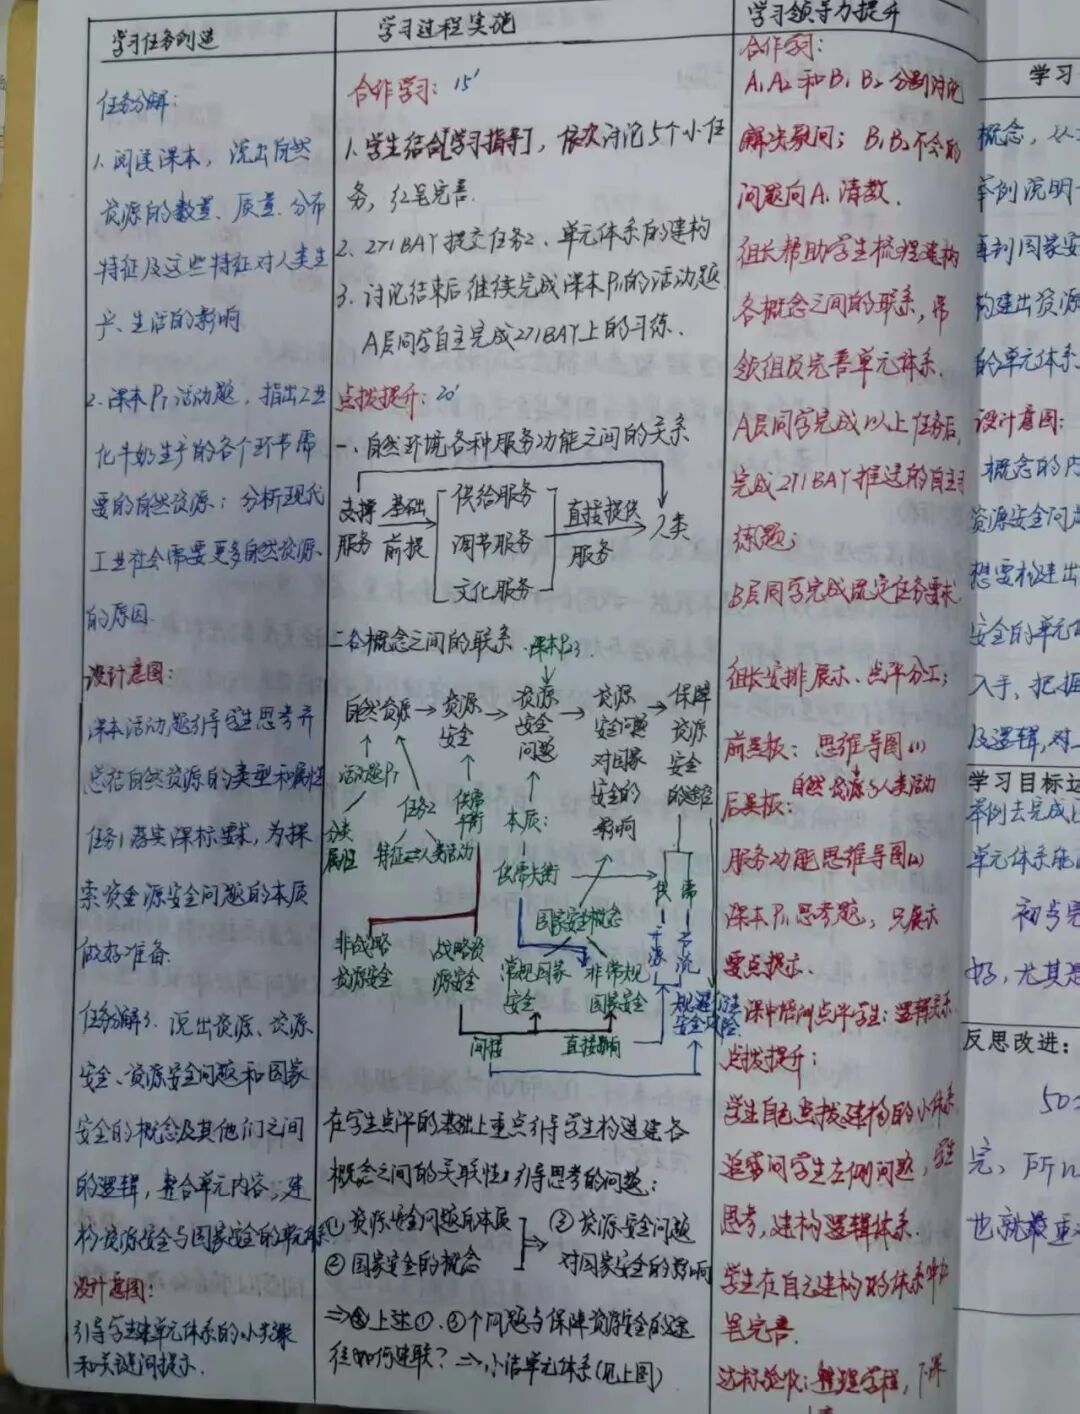 学习任务创造
任务分解：
1. 阅读课本，说出自然
资源的数量、质量、分布
特征及这些特征对人类生
产、生活的影响
2. 课本P7活动题，指出工业
化牛奶生产的各个环节需
要的自然资源；分析现代
工业社会需要更多自然资源
的原因.
设计意图：
课本活动题引导学生思考并
总结自然资源的类型和属性
任务1落实课标要求，为探
索资源安全问题的本质
做好准备.
任务分解3. 说出资源、资源
安全、资源安全问题和国家
安全的概念及其他们之间
的逻辑，整合单元内容，建
构资源安全与国家安全的单元体系
设计意图：
引导学生建单元体系的小步骤
和关键问提示.
学习过程实施
合作学习：15'
1. 学生结合[学习指导]，依次讨论5个小任
务，红笔完善.
2. 271BAY提交任务2、单元体系的建构
3. 讨论结束后继续完成课本P11的活动题
A层同学自主完成271BAY上的习练.
点拨提升：20'
一、自然环境各种服务功能之间的关系
支撑 基础 供给服务 直接提供
服务 前提 调节服务 服务 人类
文化服务
二各概念之间的联系. 课本P23.
自然资源→资源安全→资源安全问题→资源安全问题对国家安全的影响→保障资源安全的途径
活动题P7
任务2 供需平衡 本质：
分类 属性 特征⇄人类活动
供需失衡
供 需
开源 节流
国家安全概念
非战略资源安全 战略资源安全 常规国家安全 非常规国家安全
间接 直接影响
在学生点评的基础上重点引导学生构造建各
概念之间的关联性，引导思考的问题：
① 资源安全问题的本质
② 国家安全的概念
③ 资源安全问题
对国家安全的影响
⇒④上述①、③个问题与保障资源安全的途
径如何建联？⇒小结单元体系(见上图)
学习领导力提升
合作学习：
A1A2和B1B2分别讨论
解决疑问；B1B2不会的
问题向A1请教.
组长帮助学生梳理建构
各概念之间的联系，带
领组员完善单元体系.
A层同学完成以上任务后，
完成271BAY推送的自主
练题；
B层同学完成规定任务要求
组长安排展示、点评分工；
前黑板：思维导图(1)
自然资源与人类活动
后黑板：
服务功能思维导图(2)
课本P11思考题，只展示
要点提示.
课中陪问点评学生：逻辑关系.
点拨提升：
学生自己点拨建构的小体系
追问同学生立例问题，学生
思考，建构逻辑体系.
学生在自己建构好的体系中红
笔完善.
达标验收：整理学程，下课
学习
概念，从
举例说明
再到国家安
构建出资源
的单元体系
设计意图：
概念的内
资源安全问
想要构建出
安全的单元
入手，把握
及逻辑，对
学习目标达
举例去完成
单元体系能
好，尤其是
反思改进：
50
完，所以
也就最重